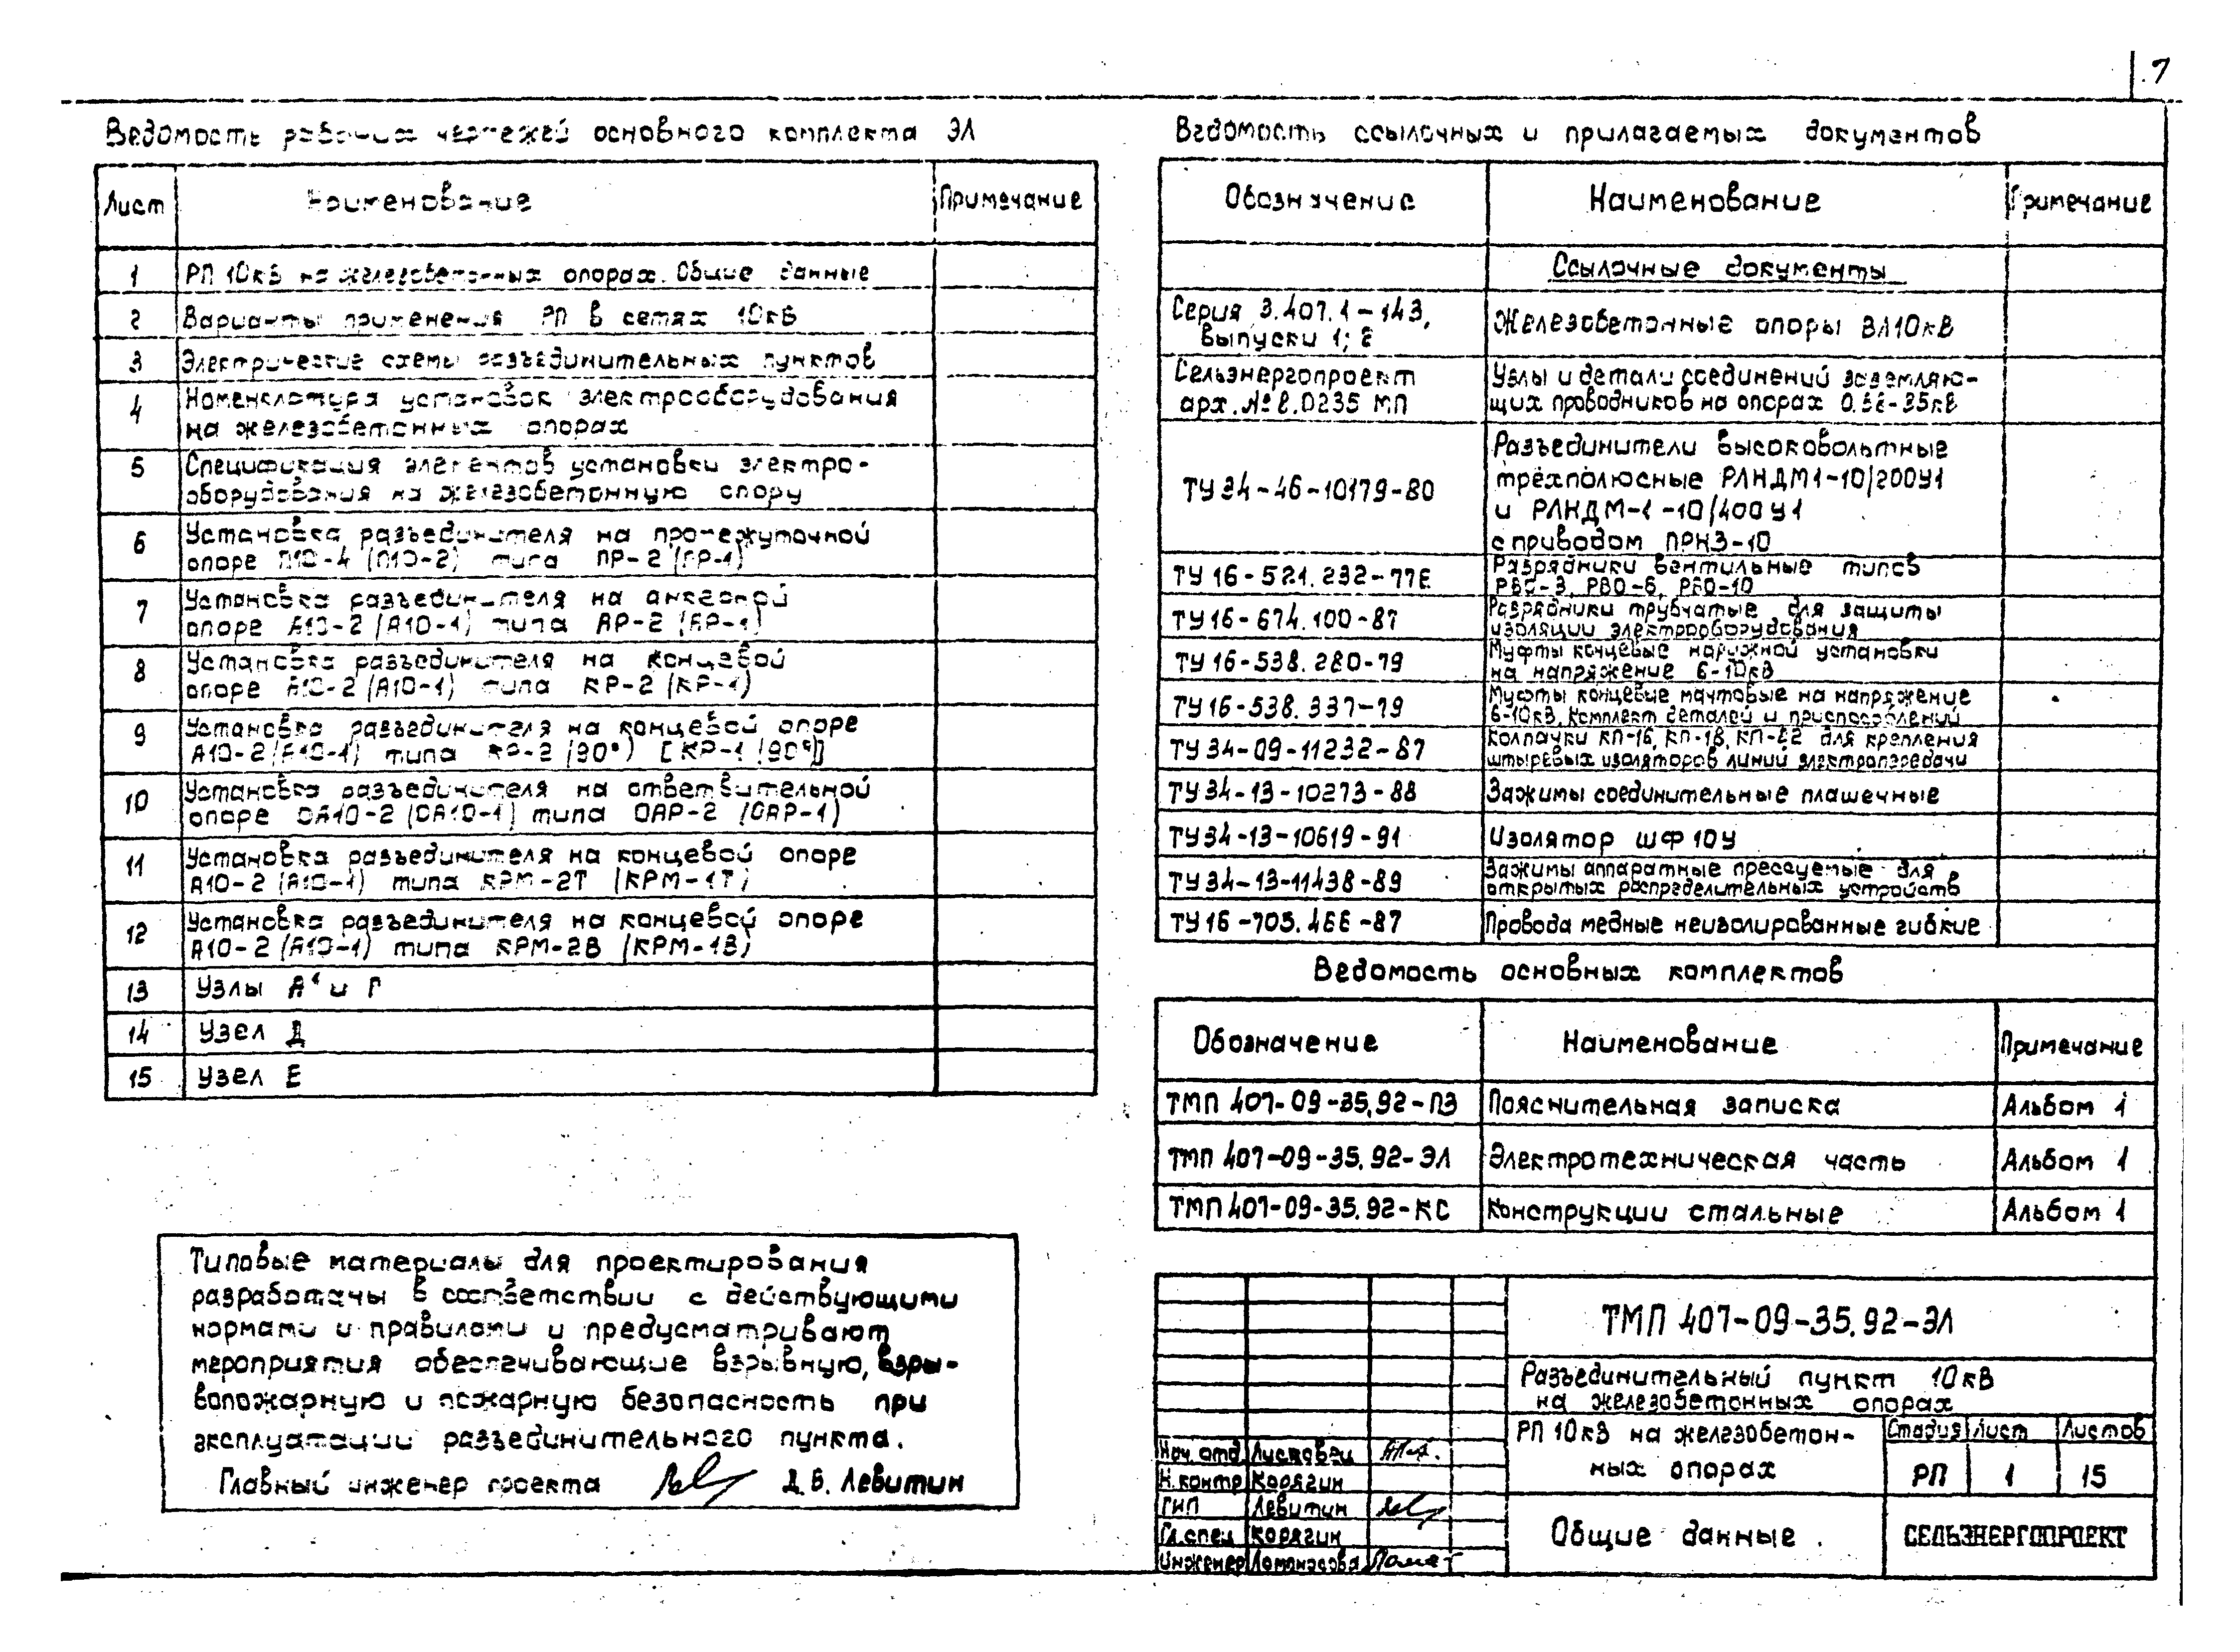 7
Ведомость рабочих чертежей основного комплекта ЭЛ
Лист
Наименование
Примечание
1
РП 10кВ на железобетонных опорах. Общие данные
2
Варианты применения РП в сетях 10кВ
3
Электрические схемы разъединительных пунктов
4
Номенклатура установок электрооборудования
на железобетонных опорах
5
Спецификация элементов установки электро-
оборудования на железобетонную опору
6
Установка разъединителя на промежуточной
опоре П10-4 (П10-2) типа ПР-2 (ПР-1)
7
Установка разъединителя на анкерной
опоре А10-2 (А10-1) типа АР-2 (АР-1)
8
Установка разъединителя на концевой
опоре А10-2 (А10-1) типа КР-2 (КР-1)
9
Установка разъединителя на концевой опоре
А10-2 (А10-1) типа КР-2 (90°) [КР-1 (90°)]
10
Установка разъединителя на ответвительной
опоре ОА10-2 (ОА10-1) типа ОАР-2 (ОАР-1)
11
Установка разъединителя на концевой опоре
А10-2 (А10-1) типа КРМ-2Т (КРМ-1Т)
12
Установка разъединителя на концевой опоре
А10-2 (А10-1) типа КРМ-2В (КРМ-1В)
13
Узлы А и Г
14
Узел Д
15
Узел Е
Типовые материалы для проектирования
разработаны в соответствии с действующими
нормами и правилами и предусматривают
мероприятия обеспечивающие взрывную, взры-
вопожарную и пожарную безопасность при
эксплуатации разъединительного пункта.
Главный инженер проекта Д.Б. Левитин
Ведомость ссылочных и прилагаемых документов
Обозначение
Наименование
Примечание
Ссылочные документы
Серия 3.407.1-143,
выпуски 1; 2
Железобетонные опоры ВЛ10кВ
Сельэнергопроект
арх. № 8.0235 МП
Узлы и детали соединений заземляю-
щих проводников на опорах 0.38-35кВ
ТУ 34-46-10179-80
Разъединители высоковольтные
трёхполюсные РЛНДМ1-10/200У1
и РЛНДМ-1-10/400У1
с приводом ПРНЗ-10
ТУ 16-521.232-77Е
Разрядники вентильные типов
РВО-3, РВО-6, РВО-10
ТУ 16-674.100-87
Разрядники трубчатые для защиты
изоляции электрооборудования
ТУ 16-538.280-79
Муфты концевые наружной установки
на напряжение 6-10кВ
ТУ 16-538.337-79
Муфты концевые мачтовые на напряжение
6-10кВ. Комплект деталей и приспособлений
ТУ 34-09-11232-87
Колпачки КП-16, КП-18, КП-22 для крепления
штыревых изоляторов линий электропередачи
ТУ 34-13-10273-88
Зажимы соединительные плашечные
ТУ 34-13-10619-91
Изолятор ШФ 10У
ТУ 34-13-11438-89
Зажимы аппаратные прессуемые для
открытых распределительных устройств
ТУ 16-705.466-87
Провода медные неизолированные гибкие
Ведомость основных комплектов
Обозначение
Наименование
Примечание
ТМП 407-09-35.92-ПЗ
Пояснительная записка
Альбом 1
ТМП 407-09-35.92-ЭЛ
Электротехническая часть
Альбом 1
ТМП 407-09-35.92-КС
Конструкции стальные
Альбом 1
ТМП 407-09-35.92-ЭЛ
Разъединительный пункт 10кВ
на железобетонных опорах
РП 10кВ на железобетон-
ных опорах
Стадия
Лист
Листов
РП
1
15
Нач. отд. Лисковец
Н.контр Корягин
ГИП Левитин
Гл.спец Корягин
Инженер Ломоносова
Общие данные
СЕЛЬЭНЕРГОПРОЕКТ